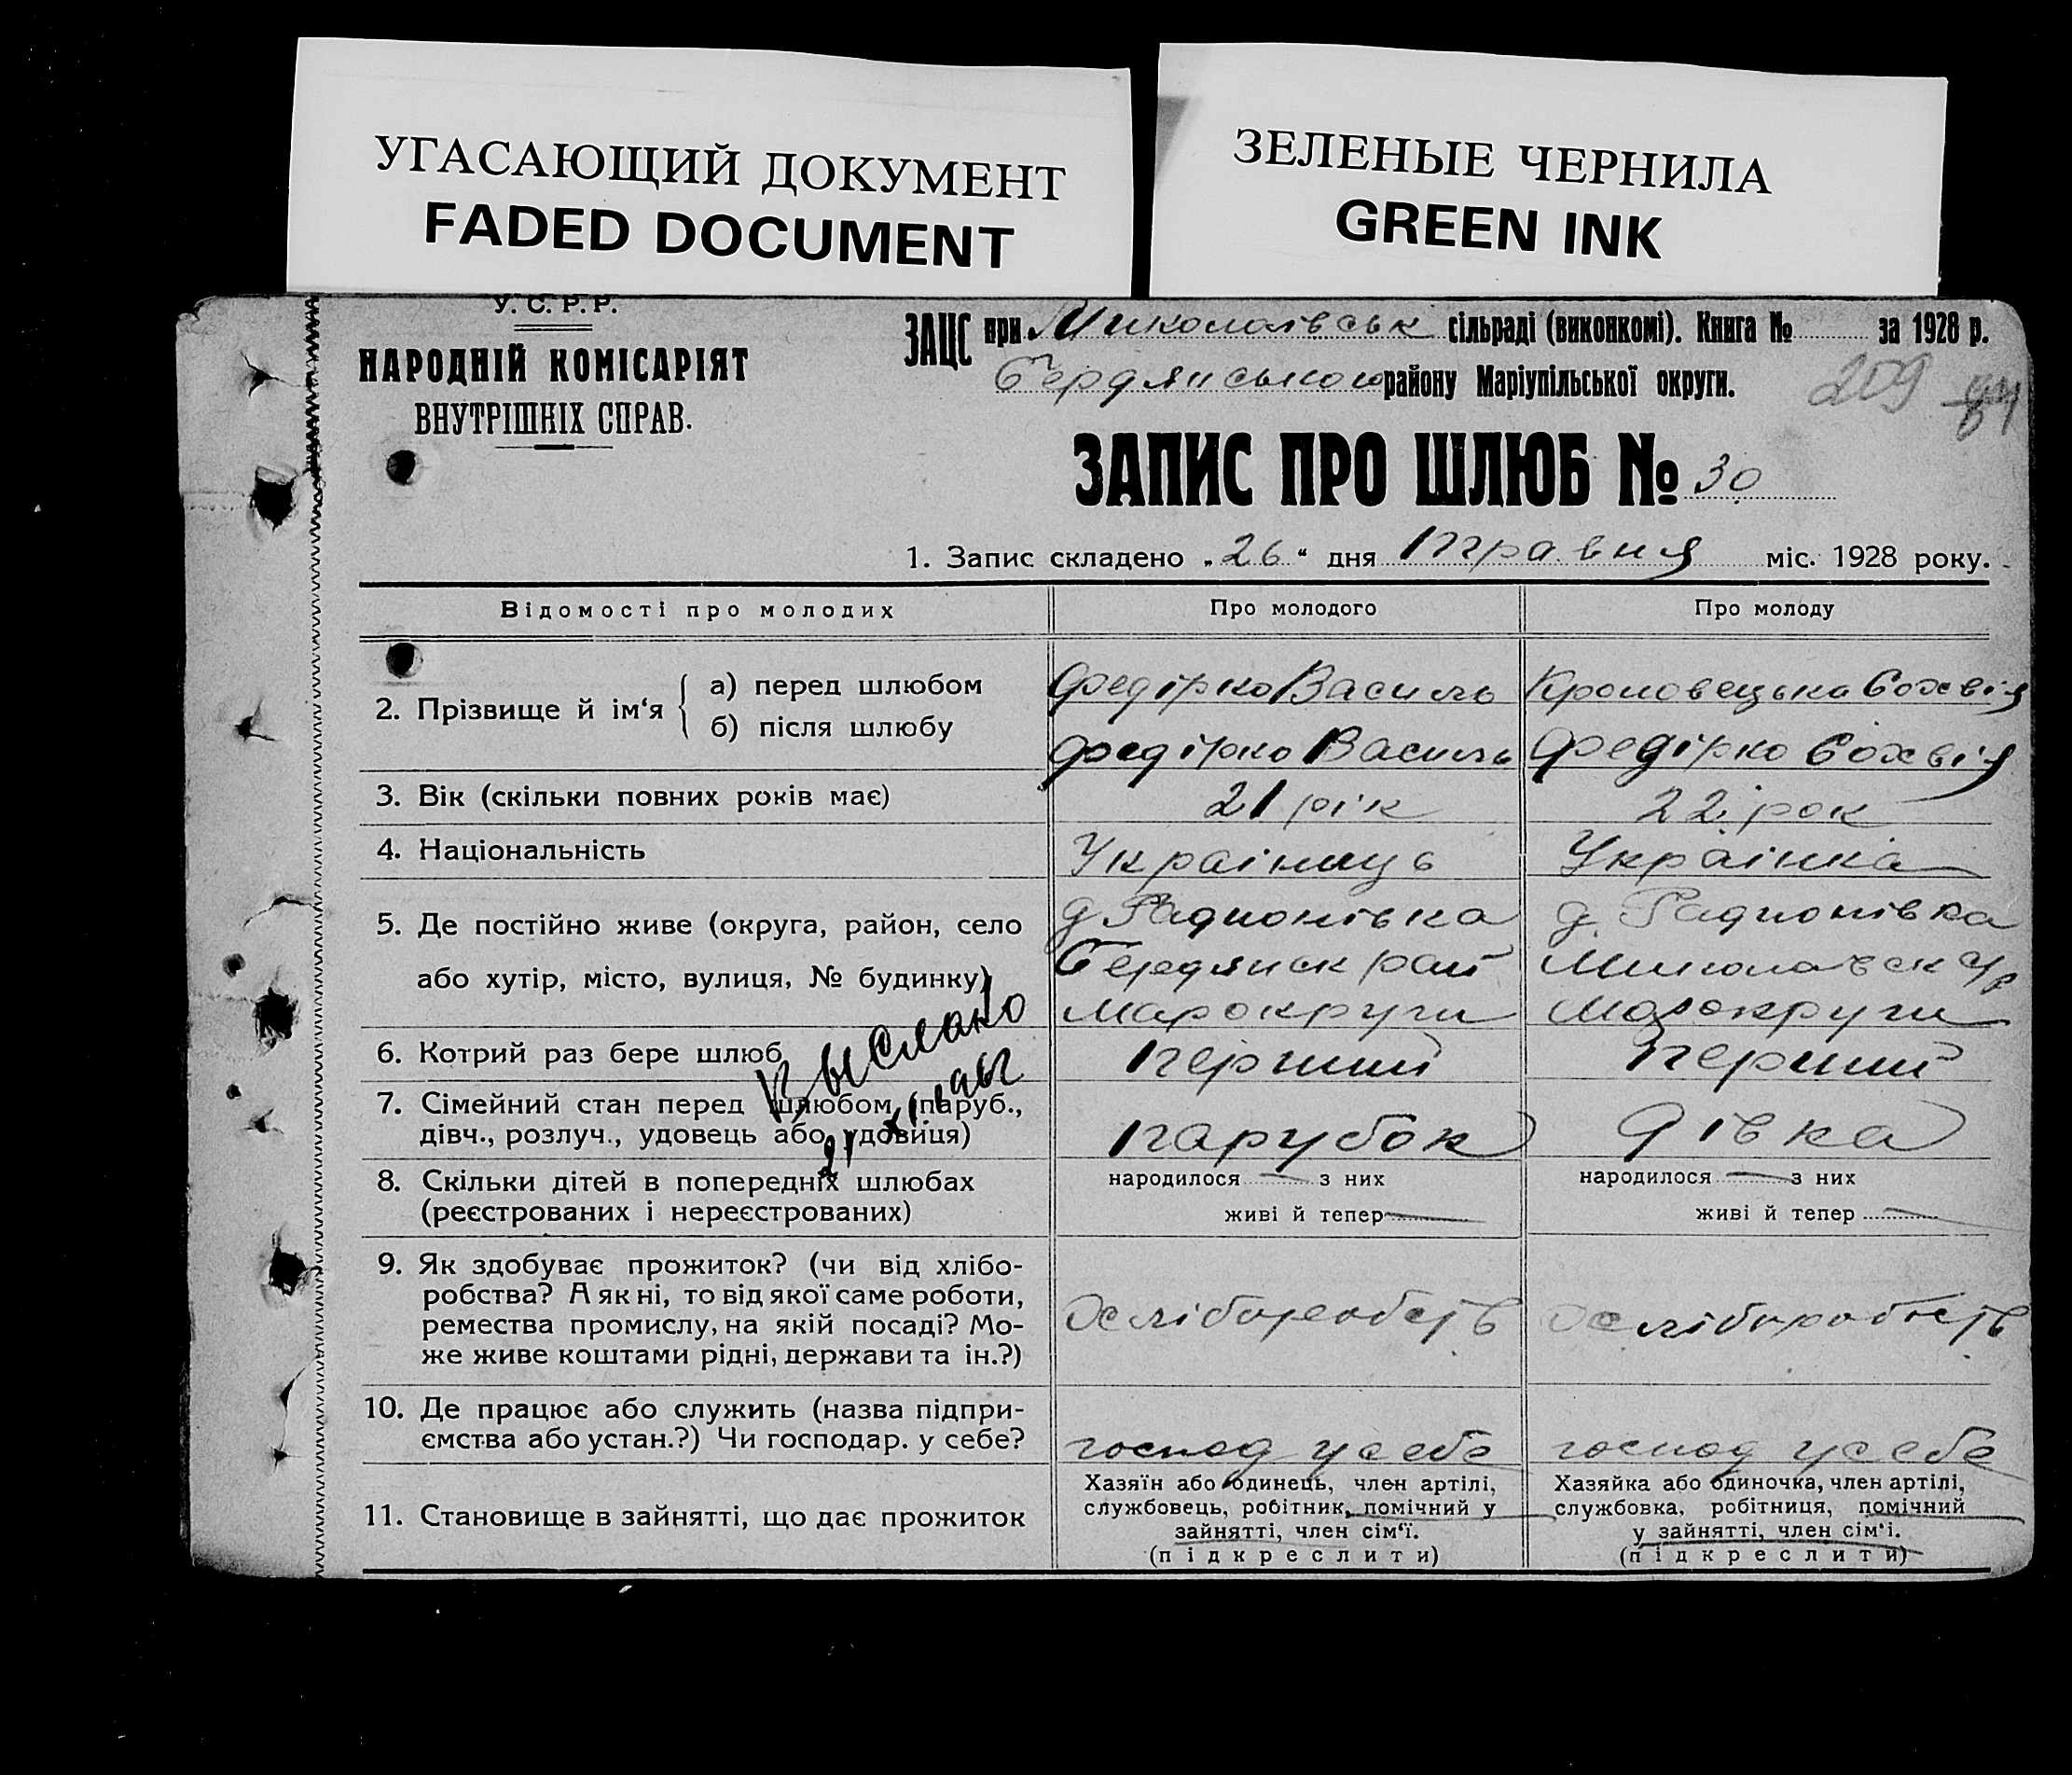 УГАСАЮЩИЙ ДОКУМЕНТ
FADED DOCUMENT
ЗЕЛЕНЫЕ ЧЕРНИЛА
GREEN INK
У. С. Р. Р.
НАРОДНІЙ КОМІСАРІЯТ
ВНУТРІШНІХ СПРАВ.
ЗАЦС при Миколаївськ сільраді (виконкомі). Книга № за 1928 р.
Бердянського району Маріупільської округи.
209 84
ЗАПИС ПРО ШЛЮБ № 30
1. Запис складено „26“ дня травня міс. 1928 року.
Відомості про молодих
Про молодого
Про молоду
2. Прізвище й ім‘я
а) перед шлюбом
б) після шлюбу
Федірко Василь
Федірко Василь
Кроловецька Софвія
Федірко Софвія
3. Вік (скільки повних років має)
21 рік
22 рок
4. Національність
Україниць
Українка
5. Де постійно живе (округа, район, село
або хутір, місто, вулиця, № будинку)
д Радионівка
Бердянск рай
Марокруги
д. Радионівка
Миколаівск
Марокруги
6. Котрий раз бере шлюб
Перший
Перший
Выслано
21 XI
7. Сімейний стан перед шлюбом (паруб.,
дівч., розлуч., удовець або удовиця)
парубок
дівка
8. Скільки дітей в попередніх шлюбах
(реєстрованих і нереєстрованих)
народилося — з них
живі й тепер —
народилося — з них
живі й тепер —
9. Як здобуває прожиток? (чи від хлібо-
робства? А як ні, то від якої саме роботи,
ремества промислу, на якій посаді? Мо-
же живе коштами рідні, держави та ін.?)
Хліборобств
Хліборобств
10. Де працює або служить (назва підпри-
ємства або устан.?) Чи господар. у себе?
господ у себе
господ у себе
11. Становище в зайнятті, що дає прожиток
Хазяїн або одинець, член артілі,
службовець, робітник, помічний у
зайнятті, член сім‘ї.
(підкреслити)
Хазяйка або одиночка, член артілі,
службовка, робітниця, помічний
у зайнятті, член сім‘і.
(підкреслити)